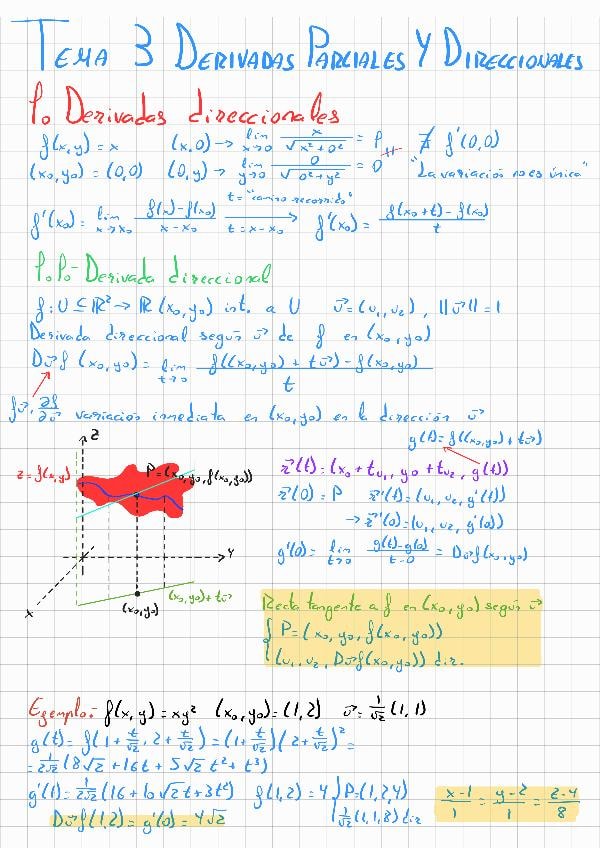 TEMA 3 DERIVADAS PARCIALES Y DIRECCIONALES
1. Derivadas direccionales
f(x,y) = x (x,0) → lim x→0 x/√(x²+0²) = 1 ∄ f'(0,0)
(x₀,y₀) = (0,0) (0,y) → lim y→0 0/√(0²+y²) = 0 "La variación no es única"
t = "camino recorrido"
f'(x₀) = lim x→x₀ (f(x)-f(x₀))/(x-x₀) → t=x-x₀ f'(x₀) = (f(x₀+t)-f(x₀))/t
1.1.- Derivada direccional
f: U ⊆ ℝ² → ℝ (x₀,y₀) int. a U v⃗ = (v₁,v₂), ||v⃗|| = 1
Derivada direccional según v⃗ de f en (x₀,y₀)
Dv⃗f (x₀,y₀) = lim t→0 (f((x₀,y₀) + tv⃗) - f(x₀,y₀))/t
fv⃗, ∂f/∂v⃗ variación inmediata en (x₀,y₀) en la dirección v⃗
g(t) = f((x₀,y₀)+tv⃗)
z
z = f(x,y)
P = (x₀,y₀,f(x₀,y₀))
y
x
(x₀,y₀)
(x₀,y₀)+tv⃗
r⃗(t) = (x₀+tv₁, y₀+tv₂, g(t))
r⃗(0) = P r⃗'(t) = (v₁,v₂,g'(t))
→ r⃗'(0) = (v₁,v₂,g'(0))
g'(0) = lim t→0 (g(t)-g(0))/(t-0) = Dv⃗f(x₀,y₀)
Recta tangente a f en (x₀,y₀) según v⃗
{ P = (x₀,y₀,f(x₀,y₀))
(v₁,v₂,Dv⃗f(x₀,y₀)) dir.
Ejemplo.- f(x,y) = xy² (x₀,y₀) = (1,2) v⃗ = 1/√2 (1,1)
g(t) = f(1+t/√2, 2+t/√2) = (1+t/√2)(2+t/√2)² =
= 1/2√2 (8√2 + 16t + 5√2t² + t³)
g'(t) = 1/2√2 (16+10√2t+3t²) f(1,2) = 4 } P=(1,2,4)
Dv⃗f(1,2) = g'(0) = 4√2 1/√2 (1,1,8) dir
(x-1)/1 = (y-2)/1 = (z-4)/8